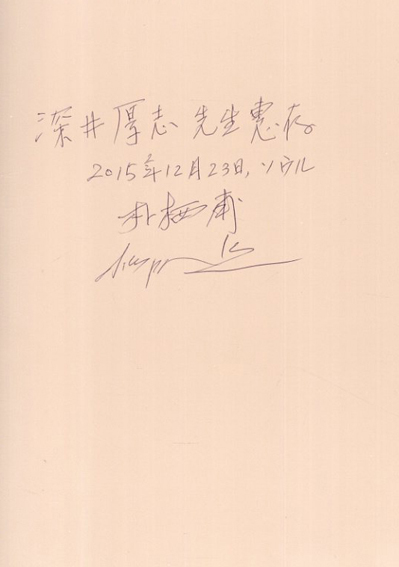 深井厚志 先生惠存
2015年12月23日, ソウル
朴栖甫